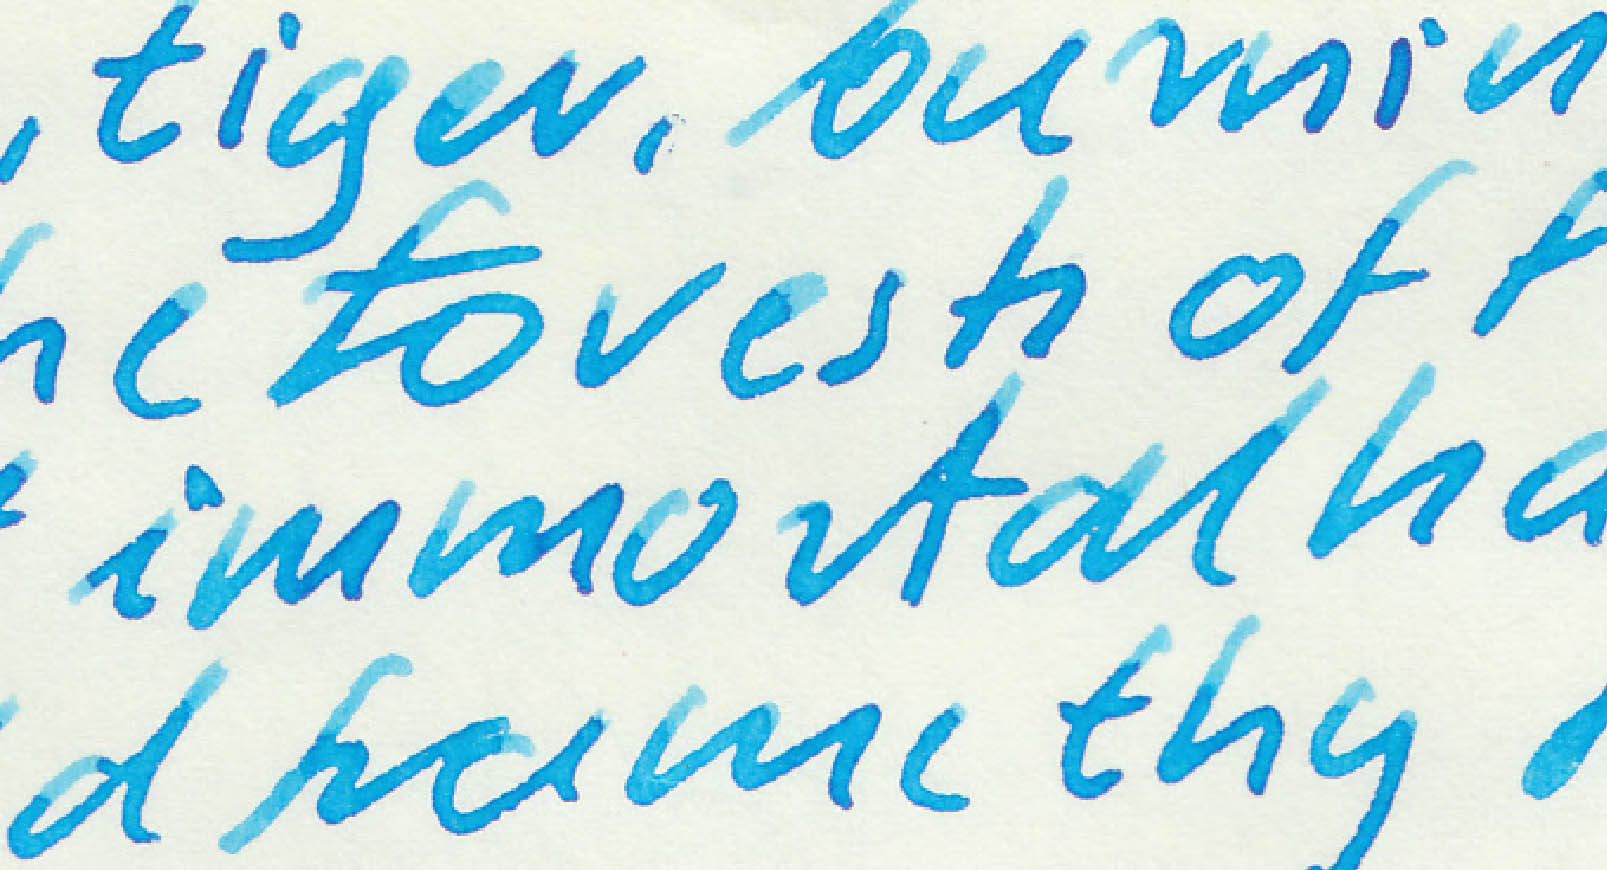 , tiger, burnin
he forests of
immortal ha
d frame thy